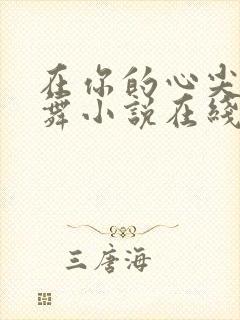 在你的心尖
舞小说在线
三唐海